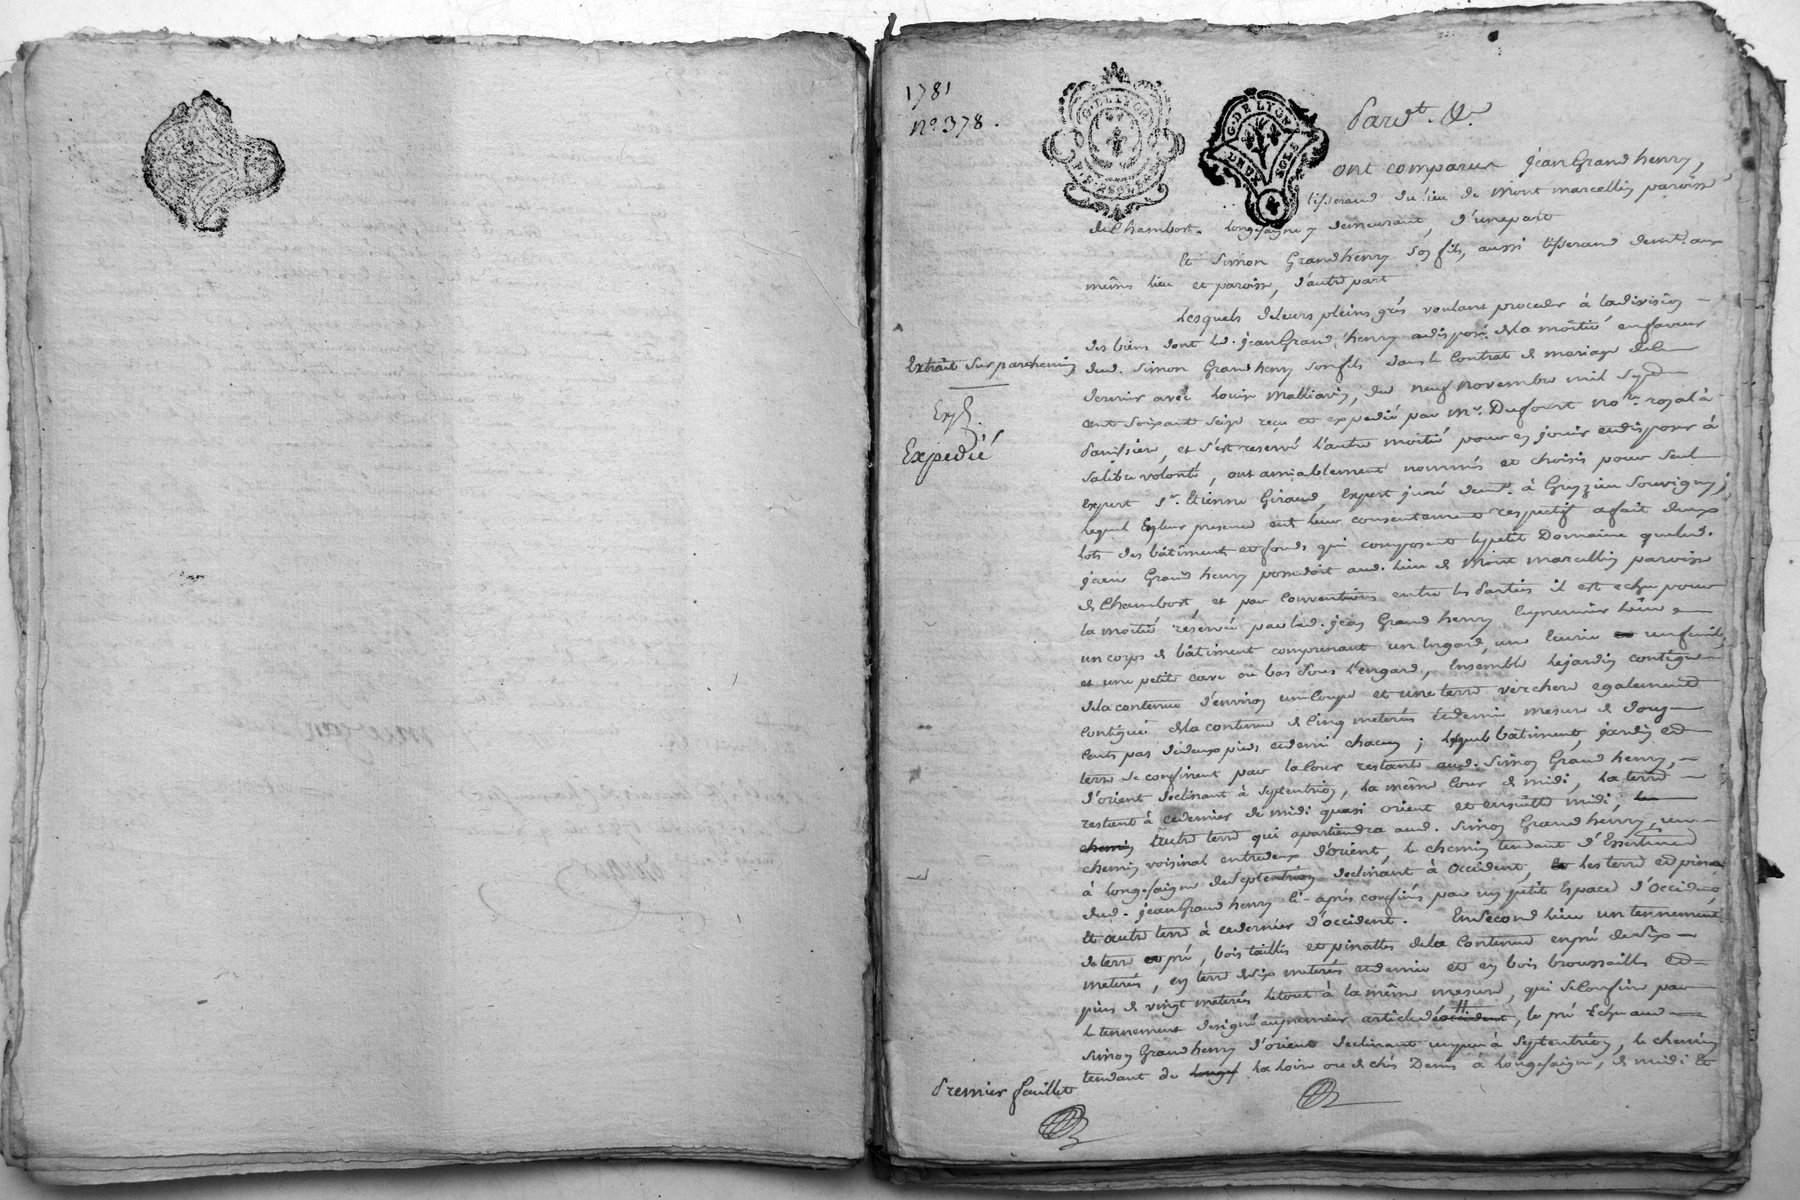 1781
n.° 378.
Pard.t &.a
ont comparus jean Grand henry,
tisserand du lieu de mont marcellin paroisse
de Chambost-longessaigne y demeurant, d'une part
Et Simon Grand henry son fils, aussi tisserand demt. aux
mêmes lieu et paroisse, d'autre part
Lesquels de leurs pleins grés voulant proceder à la division
des biens dont led. jean Grand henry a disposé de la moitié en faveur
dud. Simon Grand henry son fils dans le Contrat de mariage de ce
dernier avec Louise Malliavin, du neuf novembre mil sept
cent soixante seize reçu et expedié par m.e Dufourt no.re royal à
Panissière, et s'est reservé l'autre moitié pour en jouir et disposer à
sa libre volonté, ont amiablement nommés et choisis pour seul
expert s.r Etienne Giraud, Expert juré demt. à Grezieu Souvigny;
lequel En leur presence et de leur consentement respectif a fait deux
lots des bâtiments et fonds qui composent le petit Domaine que led.
jean Grand henry possedoit aud. lieu de Mont marcellin paroisse
de Chambost, et par Conventions entre les Parties il est echu pour
la moitié reservée par led. jean Grand henry En premier lieu
un corps de bâtiment comprenant un Engard, une Ecurie un fenil,
et une petite cave ou bas sous l'engard, Ensemble le jardin contigu
de la contenue d'environ une Coupe et une terre verchere egalement
Contiguë de la contenue de Cinq meterés et demie mesure de douze
Cents pas de deux pieds et demi chacun; lesquels bâtiment, jardin et
terre se confinent par la Cour restante aud. Simon Grand henry,
d'orient declinant à Septentrion, la même Cour de midi, la terre
restant à ce dernier de midi quasi orient et ensuitte midi, le
chemin autre terre qui apartiendra aud. Simon Grand henry, un
chemin voisinal entredeux d'orient, le chemin tendant d'Essertines
à longessaigne de Septentrion declinant à Occident, les terre et pinée
dud. jean Grand henry Ci-après confinés par un petit Espace d'Occident
Et autre terre à ce dernier d'occident. En Second lieu un tennement
de terre pré, bois taillis et pinattes de la Contenue en pré de Six
meterés, en terre de dix meterés et demie et en bois broussailles et
pins de vingt meterés le tout à la même mesure, qui se Confine par
le tennement designé au premier article d'occident, le pré Echu aud.
Simon Grand henry d'orient declinant un peu à Septentrion, le chemin
tendant de longes la Loire ou de chés Denis à longessaigne, de midi Et
Extrait sur parchemin
Exp.
Expedié
Premier feuillet